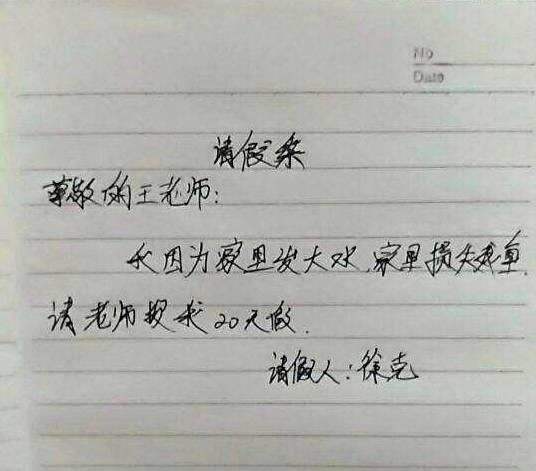 No
Date
请假条
尊敬的王老师:
我因为家里发大水,家里损失惨重,
请老师批我20天假.
请假人:徐克